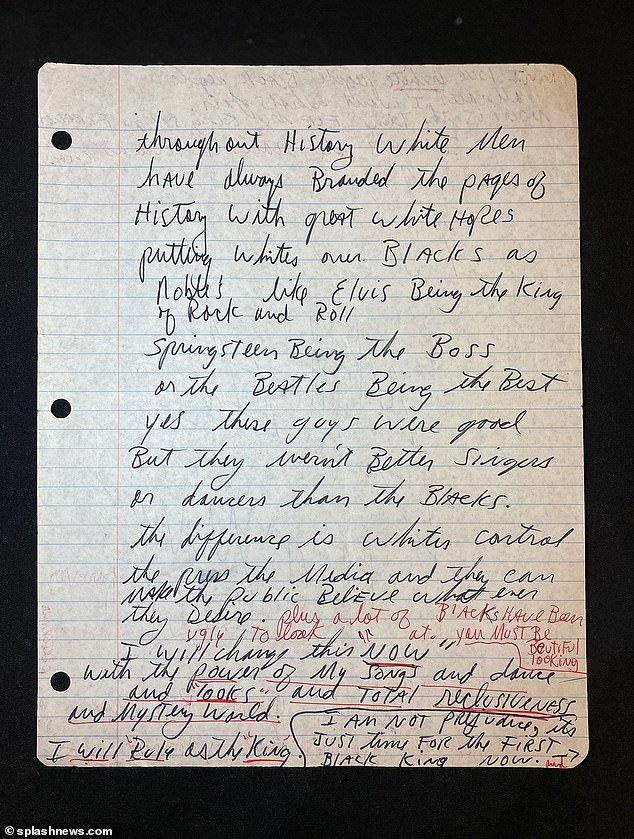 throughout History White Men
hAVE always Branded the pAges of
History With great white HoPes
putting Whites over BLACKS as
Nobles like Elvis Being the King
of Rock and Roll
Springsteen Being the Boss
or the BEATLES Being the Best
yes these guys were good
But they wern't Better Singers
or dancers than the Blacks.
the difference is whites control
the press the Media and they can
MAKE the Public BeliEVE what ever
they Desire. plus a lot of BlACKs HAVE BeEN
ugly to look at. you MUST Be
BEUTIFUL
lOOKING
I will change this "NOW"
with the power of My Songs and dance
and "looks" and TOTAL reclusiveness
and Mystery World.
I will Rule as the "King".
I AM NOT PrejudicE, its
JUST time FOR the FIRST
BlACK King NOW.
© splashnews.com